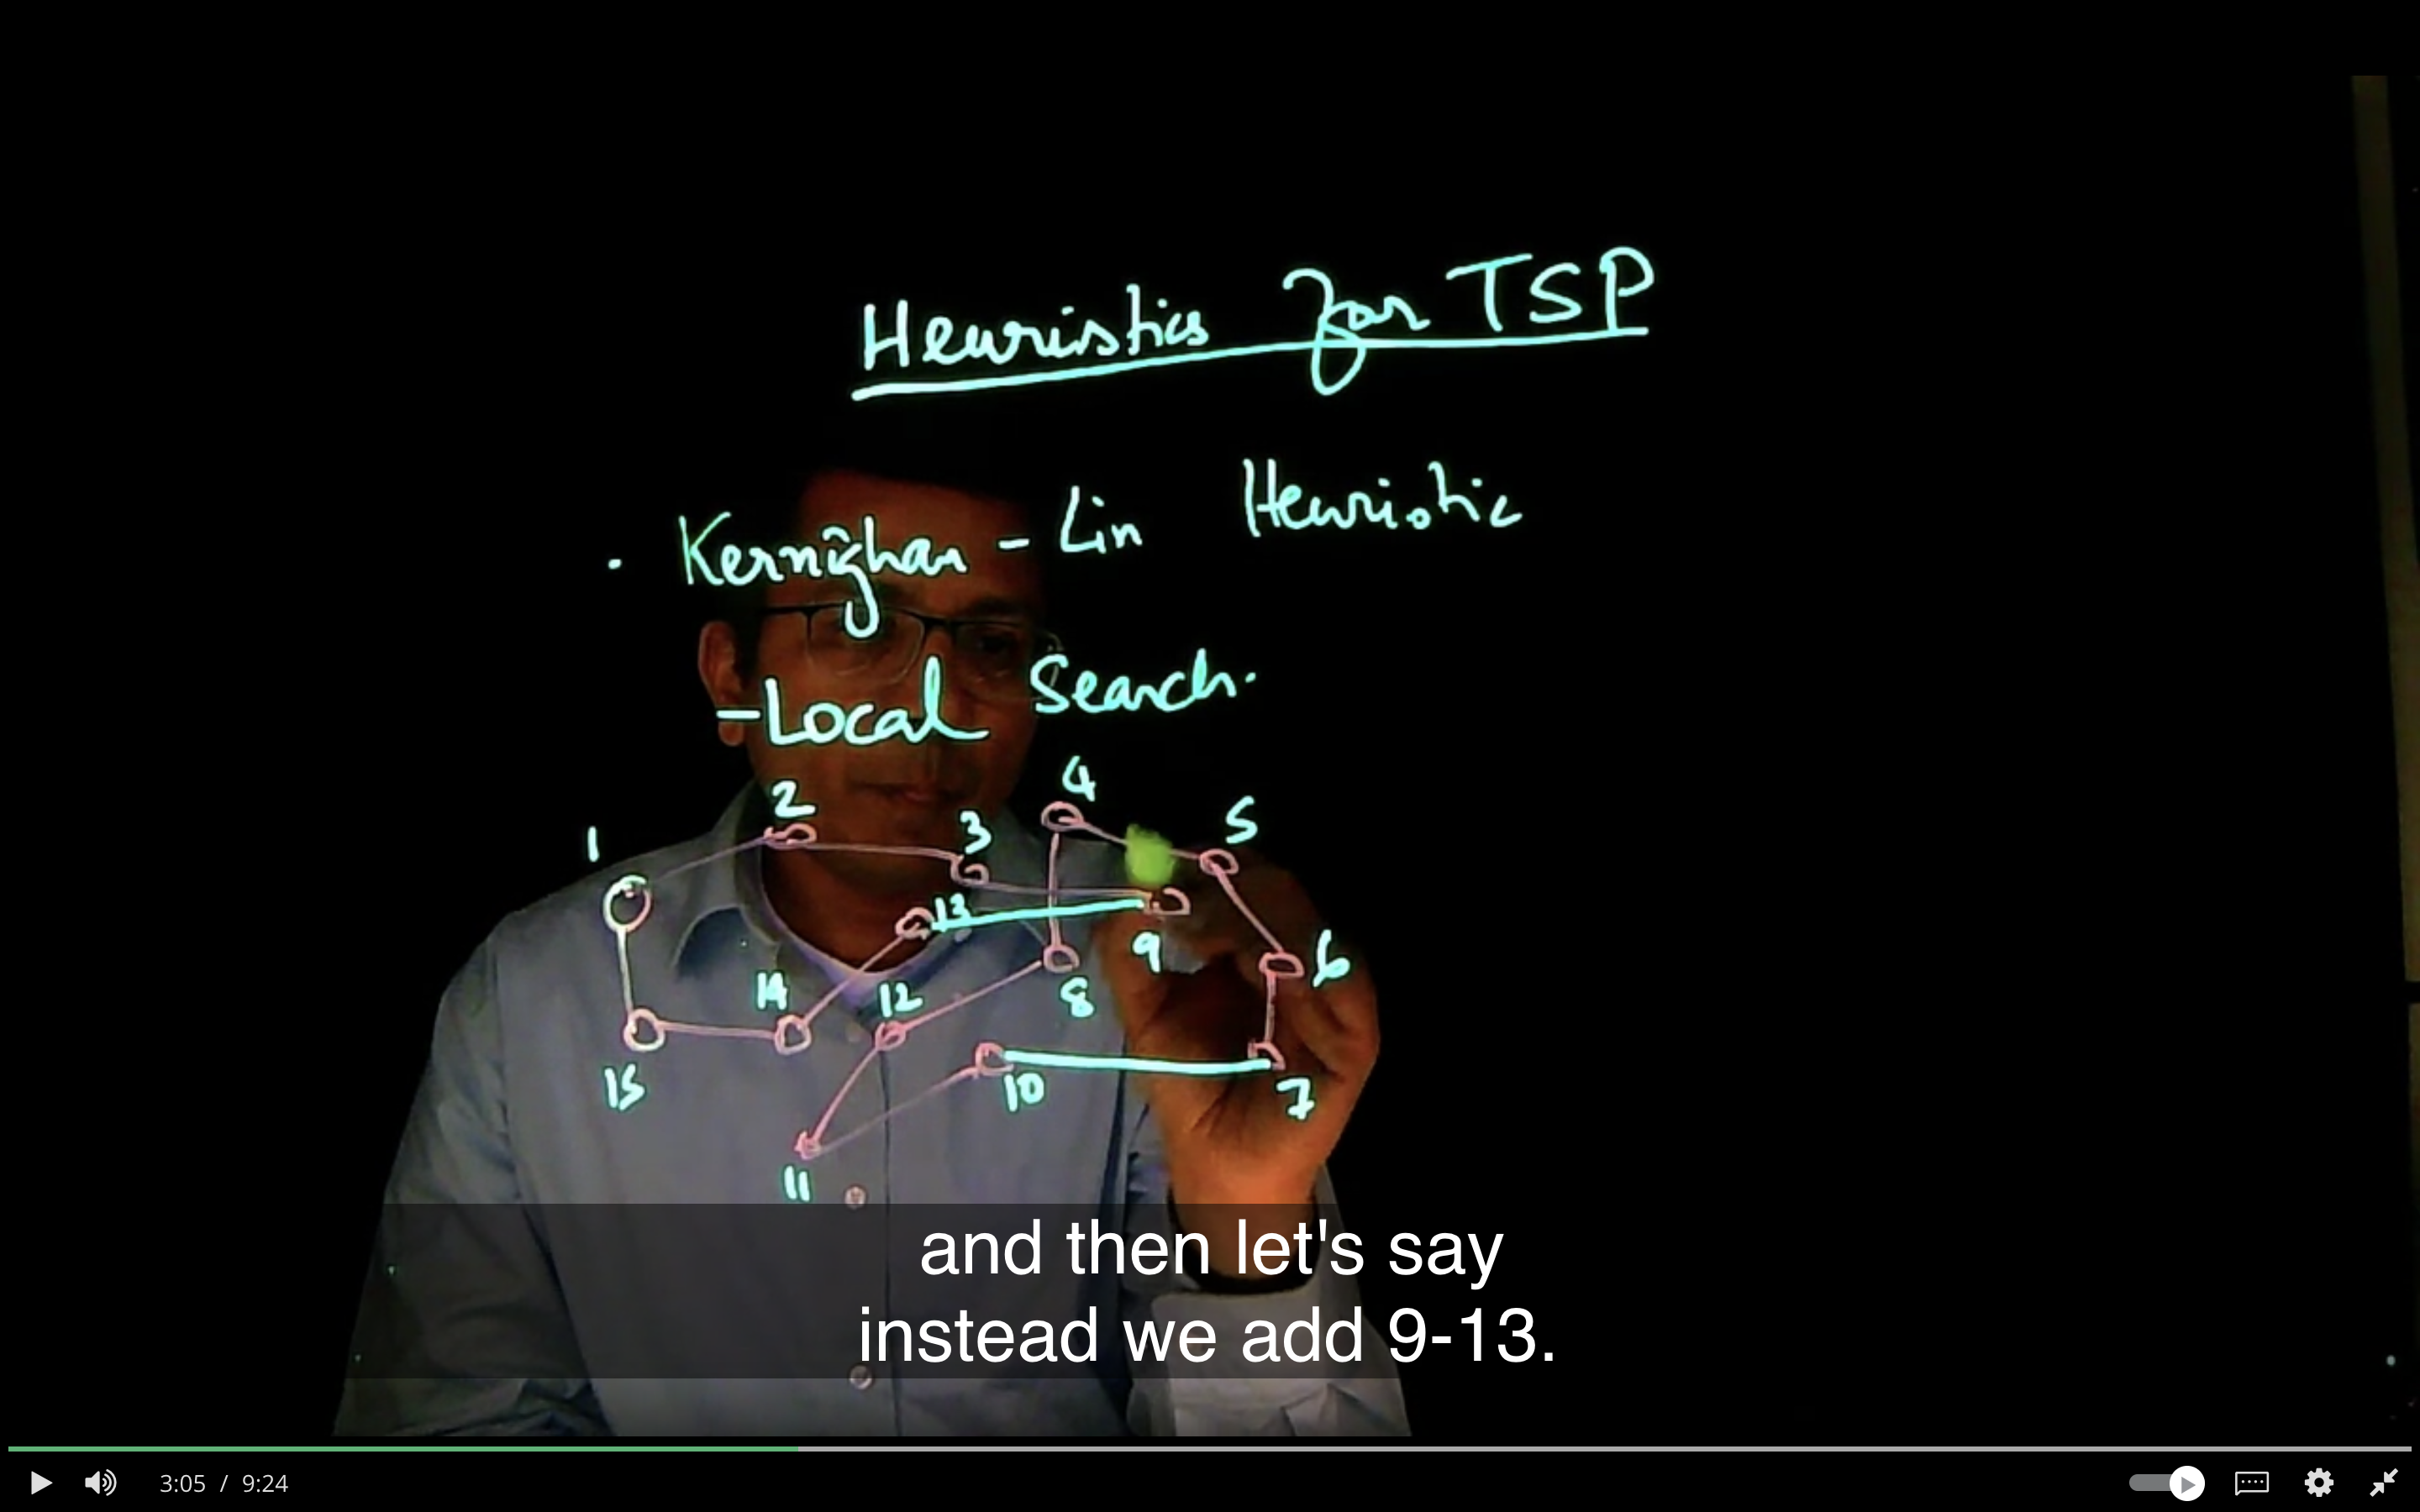 Heuristics for TSP
· Kernighan - Lin Heuristic
- Local Search.
4
2
5
3
1
13
9
6
14
12
8
15
10
7
11
and then let's say
instead we add 9-13.
3:05 / 9:24